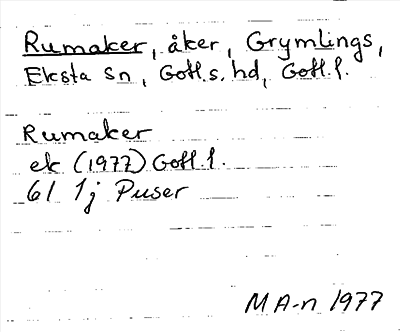 Rumaker, åker, Grymlings,
Eksta sn, Gotl.s. hd, Gotl. l.
Rumaker
ek (1977) Gotl. l.
6I 1j Puser
MA-n 1977